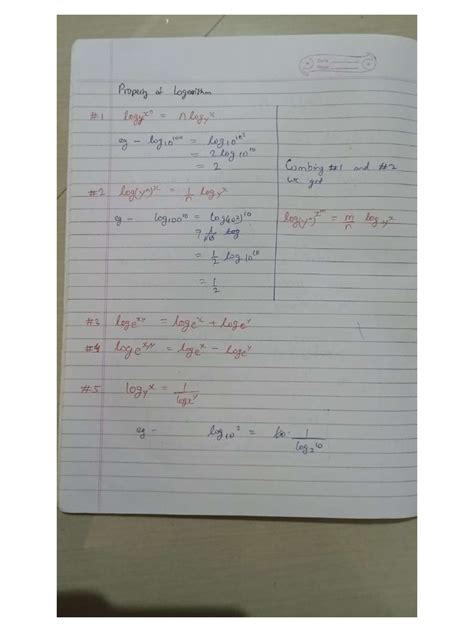 Property of Logarithm
#1 log_y x^n = n log_y x
eg - log_10 100 = log_10 10^2
= 2 log_10 10
= 2
#2 log_(y^n) x = 1/n log_y x
eg - log_100 10 = log_(10^2) 10
log
= 1/2 log_10 10
= 1/2
Combing #1 and #2
we get
log_(y^n) x^m = m/n log_y x
#3 log_e xy = log_e x + log_e y
#4 log_e x/y = log_e x - log_e y
#5 log_y x = 1/log_x y
eg - log_10 2 = 1/log_2 10